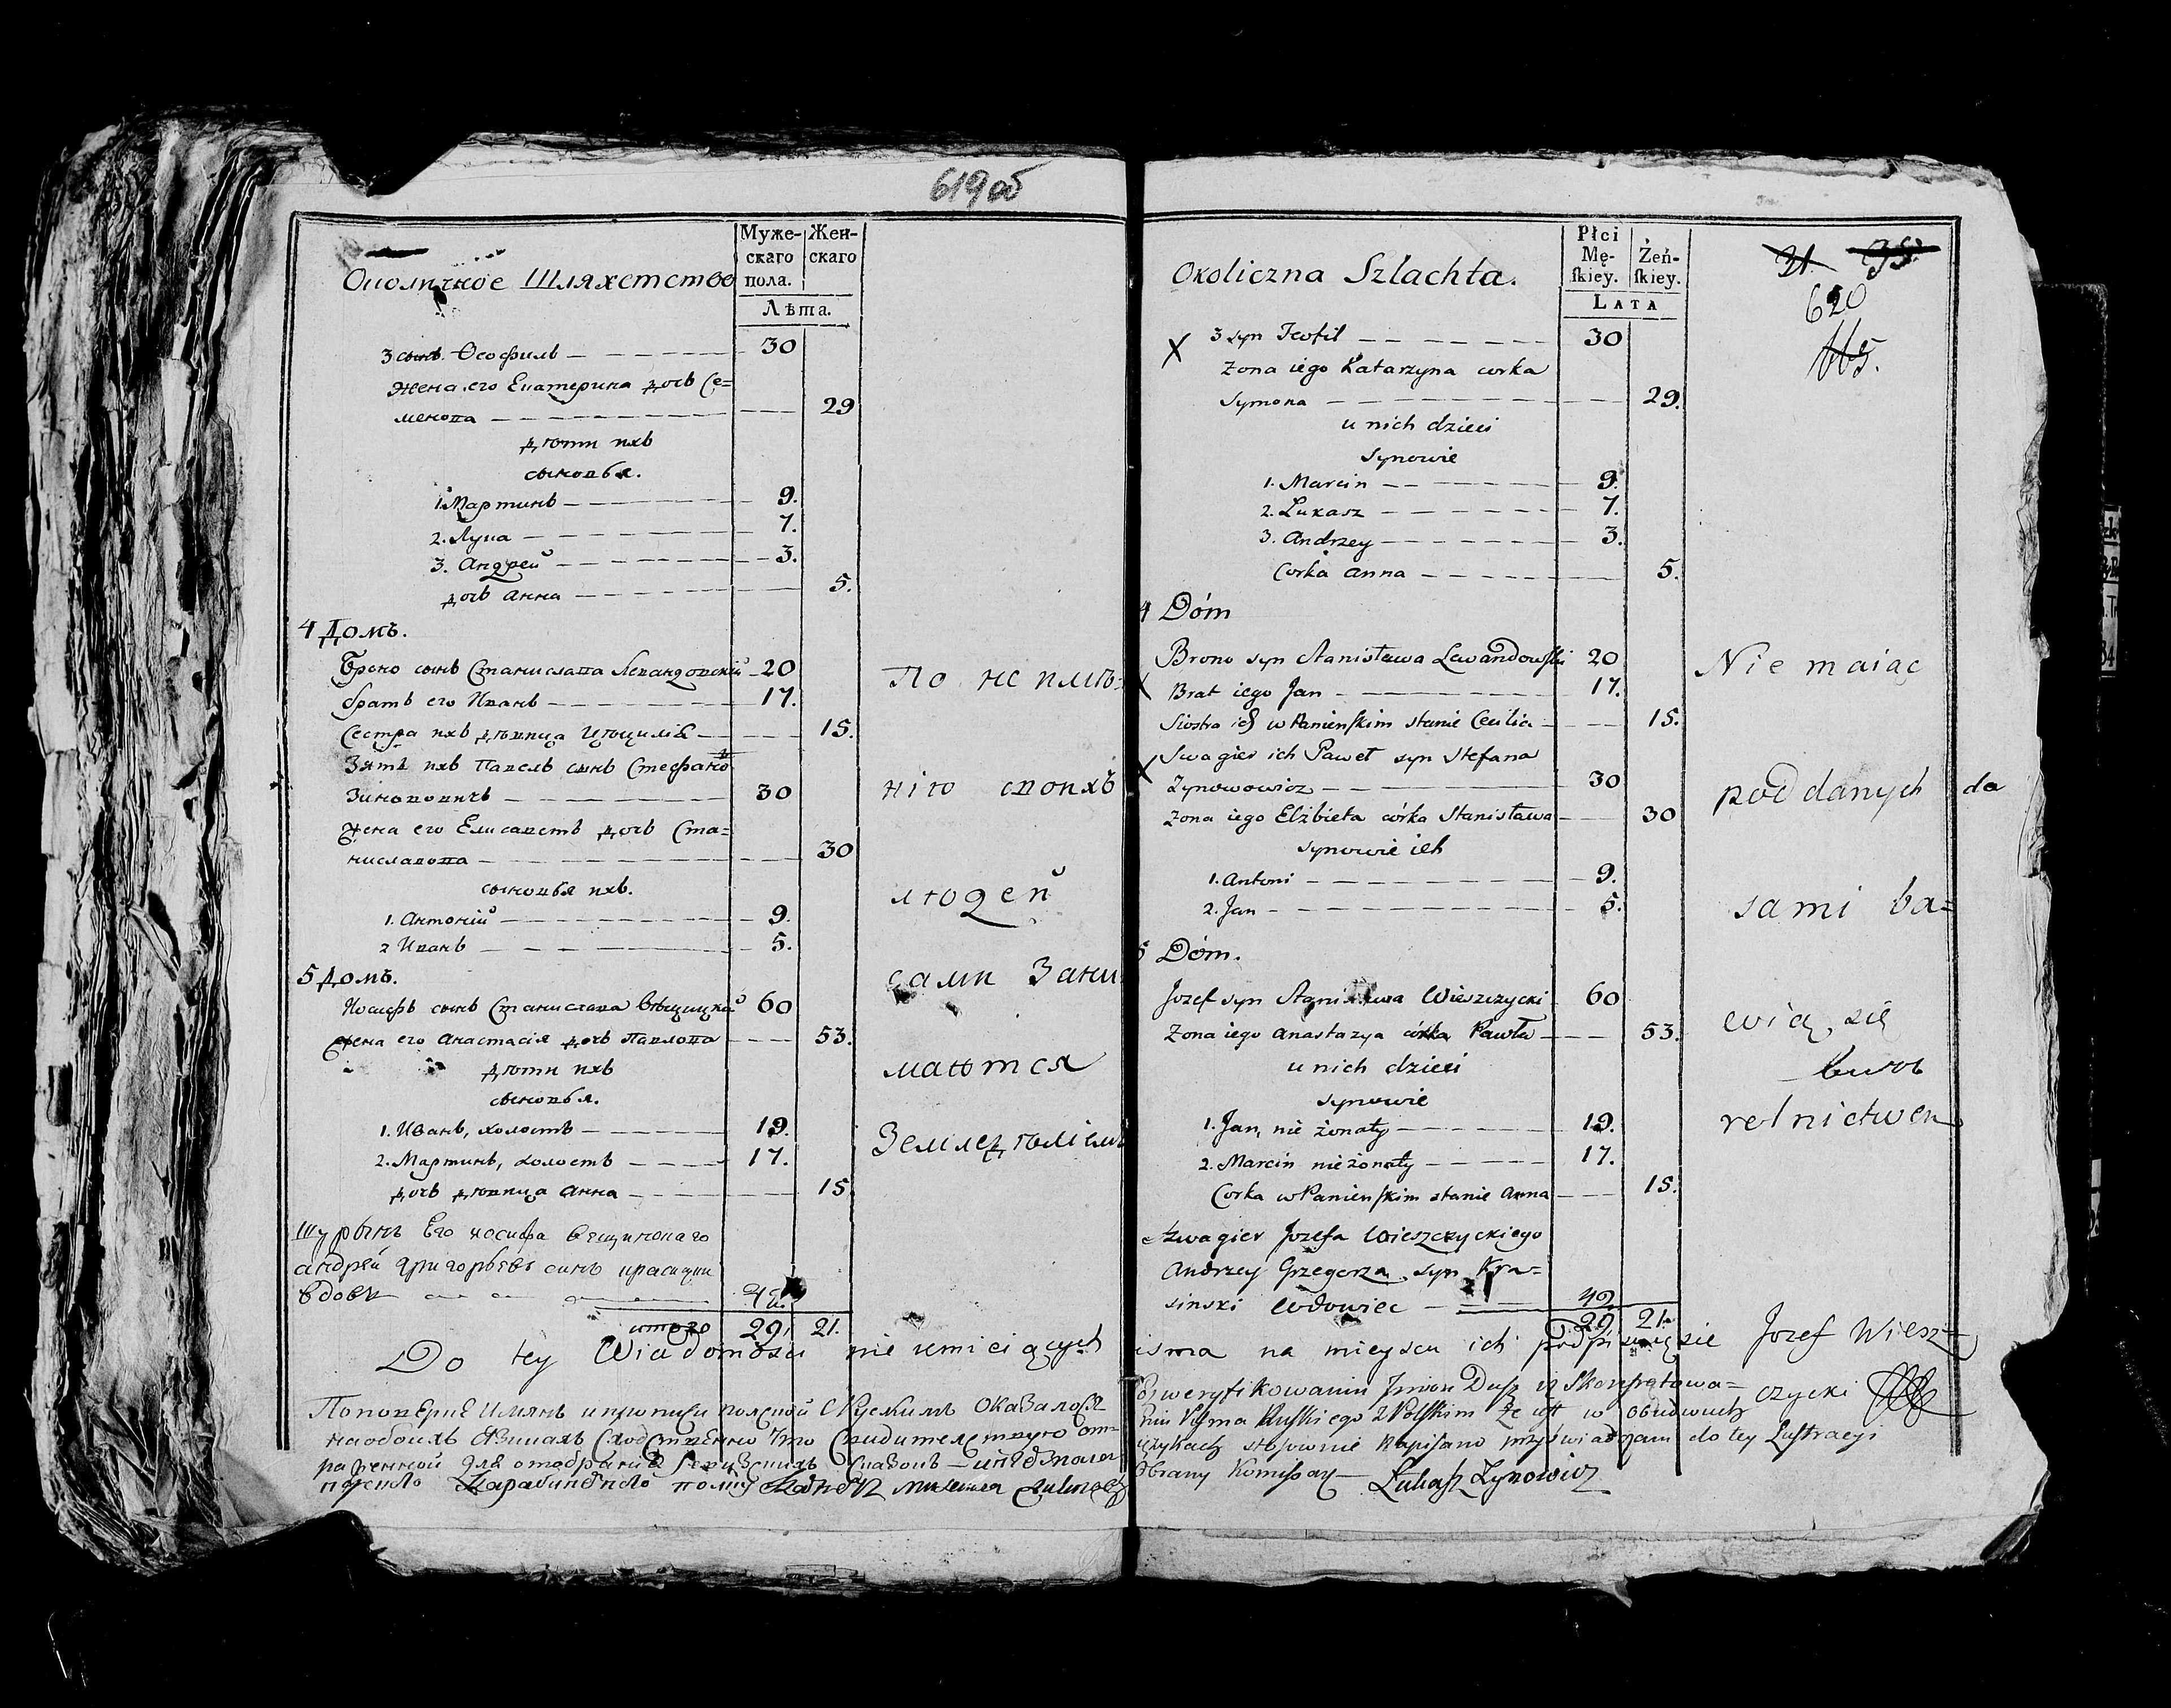 619об
Околичное Шляхетство
Муже-
скаго
пола.
Жен-
скаго
Лѣта.
3 сынъ Ѳеофилъ 30
Жена его Екатерина дочь Се=
менова 29
дѣти ихъ
сыновья.
1. Мартинъ 9.
2. Лука 7.
3. Андрей 3.
дочь Анна 5.
4 Домъ.
Броно сынъ Станислава Левандовскій 20
братъ его Иванъ 17.
Сестра ихъ дѣвица Цецилія 15.
Зять ихъ Павелъ сынъ Стефана
Зиновичъ 30
жена его Елисаветъ дочь Ста=
ниславова 30
сыновья ихъ.
1. Антоній 9.
2 Иванъ 5.
5 Домъ.
Иосифъ сынъ Станислава Вѣщицкій 60
жена его Анастасія дочь Павлова 53.
дѣти ихъ
сыновья.
1. Иванъ, холостъ 19.
2. Мартинъ, холостъ 17.
дочь дѣвица Анна 15
Шурынъ Его иосифа
андрей григорьевъ синъ
вдовъ
итого 29. 21.
По неимѣ=
нію своихъ
людей
сами Зани
маются
Земледѣліемъ
Okoliczna Szlachta.
Płci
Mę-
ſkiey.
Żeń-
ſkiey.
LATA
31. 35.
620
115.
X 3 syn Teofil 30
Zona iego Katarzyna corka
Symona 29.
u nich dzieci
Synowie
1. Marcin 9.
2. Łukasz 7.
3. Andrzey 3.
Corka Anna 5.
4 Dóm
Brono syn Stanisława Lewandowſki 20
X Brat iego Jan 17.
Siostra ich w Panienſkim stanie Cecilia 15.
X Swagier ich Paweł syn Stefana
Zynowowicz 30
Zona iego Elżbieta córka Stanisława 30
synowie ich
1. Antoni 9.
2. Jan 5.
5 Dóm.
Jozef syn Stanisława Wieszczycki 60
Zona iego Anastazya córka Pawła 53.
u nich dzieci
synowie
1. Jan, nie żonaty 19.
2. Marcin nieżonaty 17.
Corka w Panienſkim stanie Anna 15.
Szwagier Jozefa Wieszczyckiego
Andrzey Grzegorza syn Kra=
sinski Wdowiec 42
29 21.
Nie maiąc
poddanych da
sami ba=
wią się
rolnictwem
Do tey Wiadomości nie umieiących pisma na mieyscu ich podpisuię sie Jozef Wiesz=
czycki
По повѣрке Имянъ
на обоихъ
Po zweryfikowaniu Imion Dusz
Piſma Ruſkiego z Polſkim że ieſt w obudwuch
ięzykach stosownie napisano przyświadczam do tey Luſtracyi
Obrany Komiſſarz Łukaſz Zynowicz